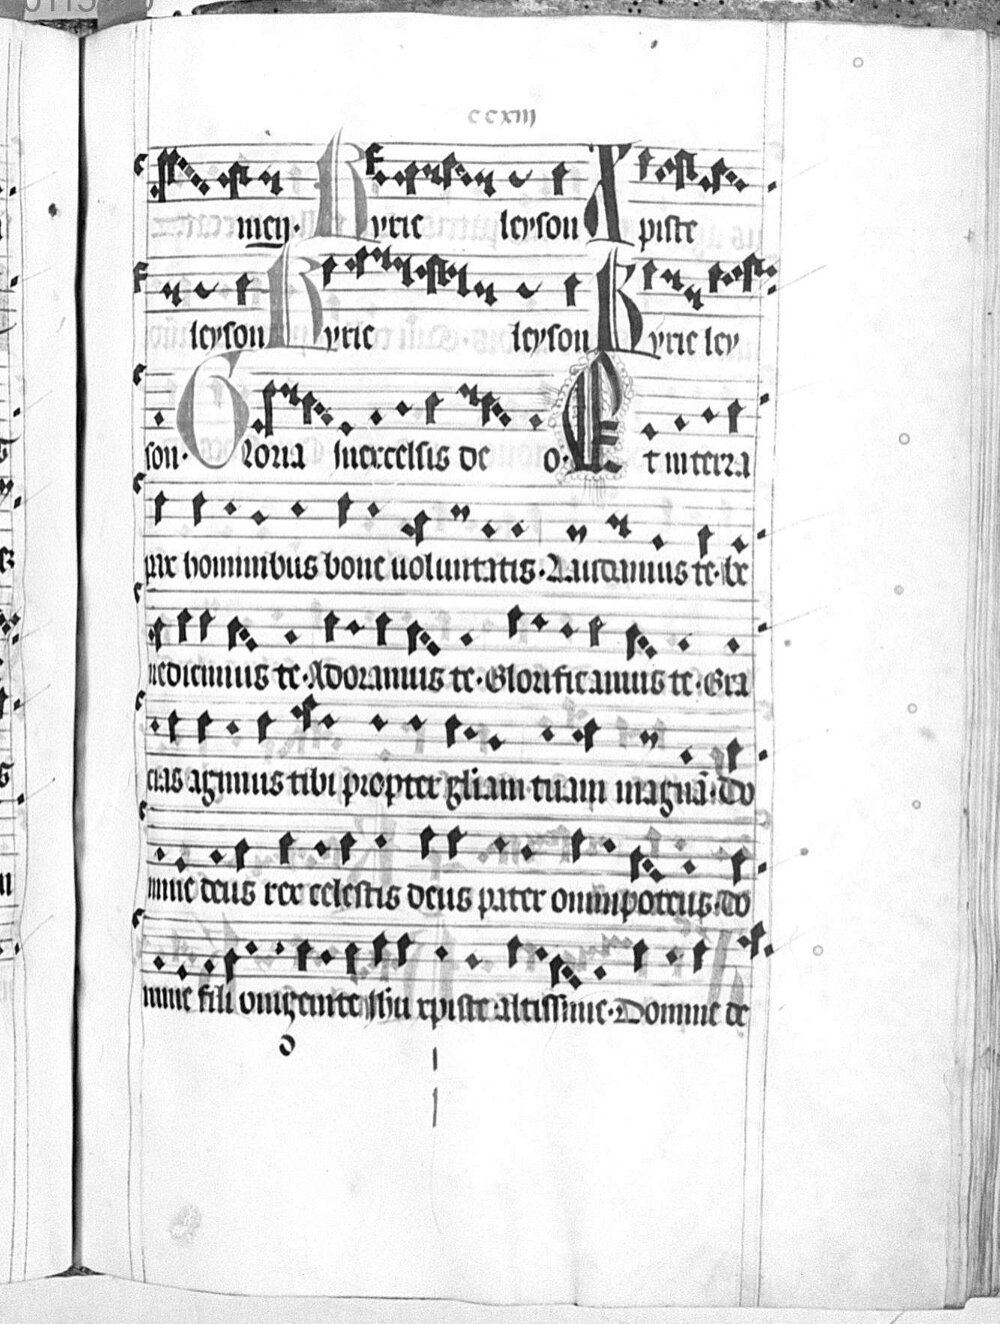 ccxiij
men. Kyrie leyson Xpiste
leyson Kyrie leyson Kyrie ley
son. Gloria in excelsis de o. Et in terra
pax hominibus bone uoluntatis. Laudamus te. be
nedicimus te. Adoramus te. Glorificamus te. Gra
cias agimus tibi propter gliam tuam magnā. Do
mine deus rex celestis deus pater omnipotens. Do
mine fili vnigenite ihu xpiste altissime. Domine de